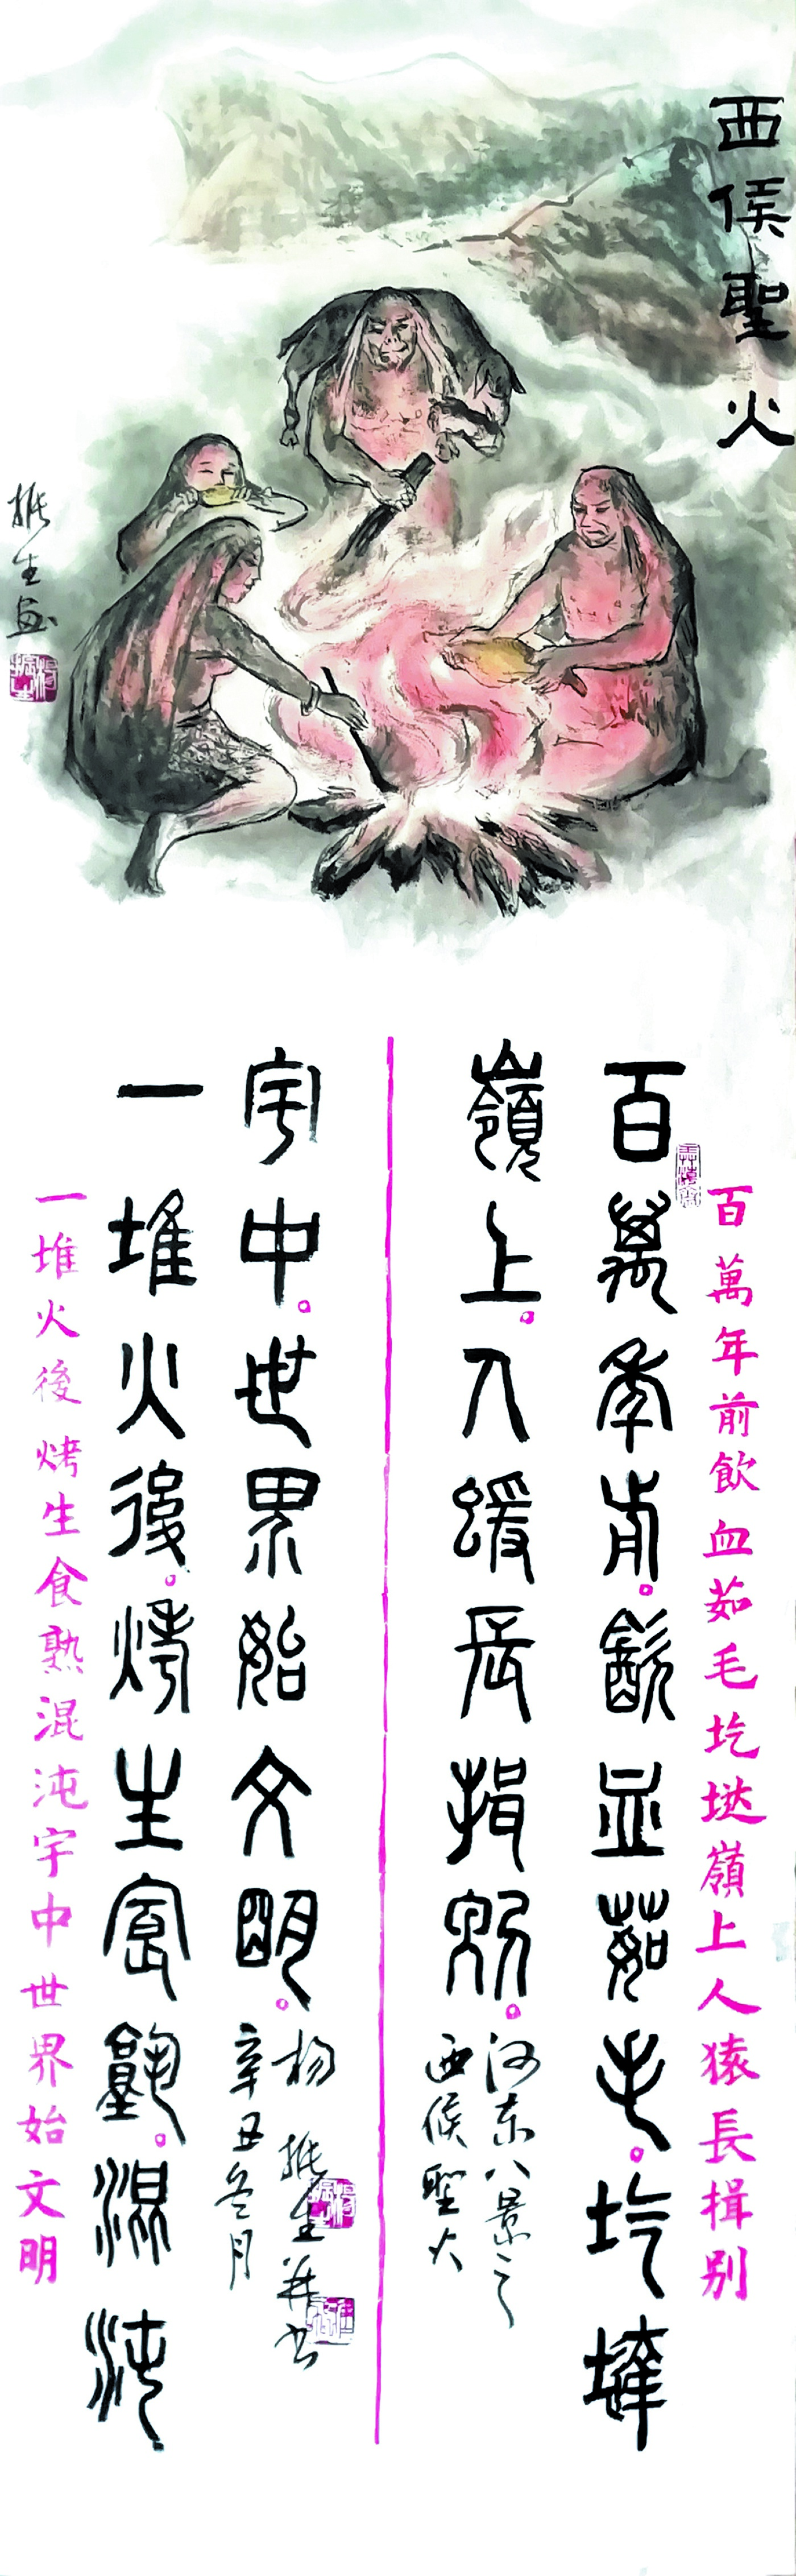 西侯聖火
振生画
百萬年前飲血茹毛圪墶嶺上人猿長揖别
百萬年前。飲血茹毛。圪墶
嶺上。人猨長揖别。
河东八景之
西侯聖火
宇中。世界始文明。
一堆火後。烤生食熟。混沌
杨振生并书
辛丑冬月
一堆火後烤生食熟混沌宇中世界始文明